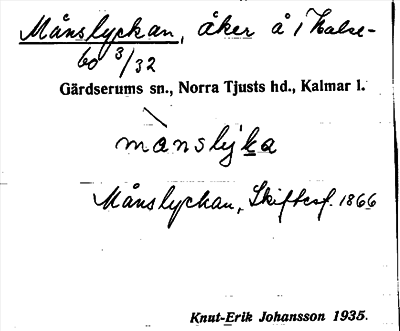 Månslyckan, åker å 1 Kalse-
bo 3/32
Gärdserums sn., Norra Tjusts hd., Kalmar l.
mànslyka
Månslyckan, Skiftesf. 1866
Knut-Erik Johansson 1935.